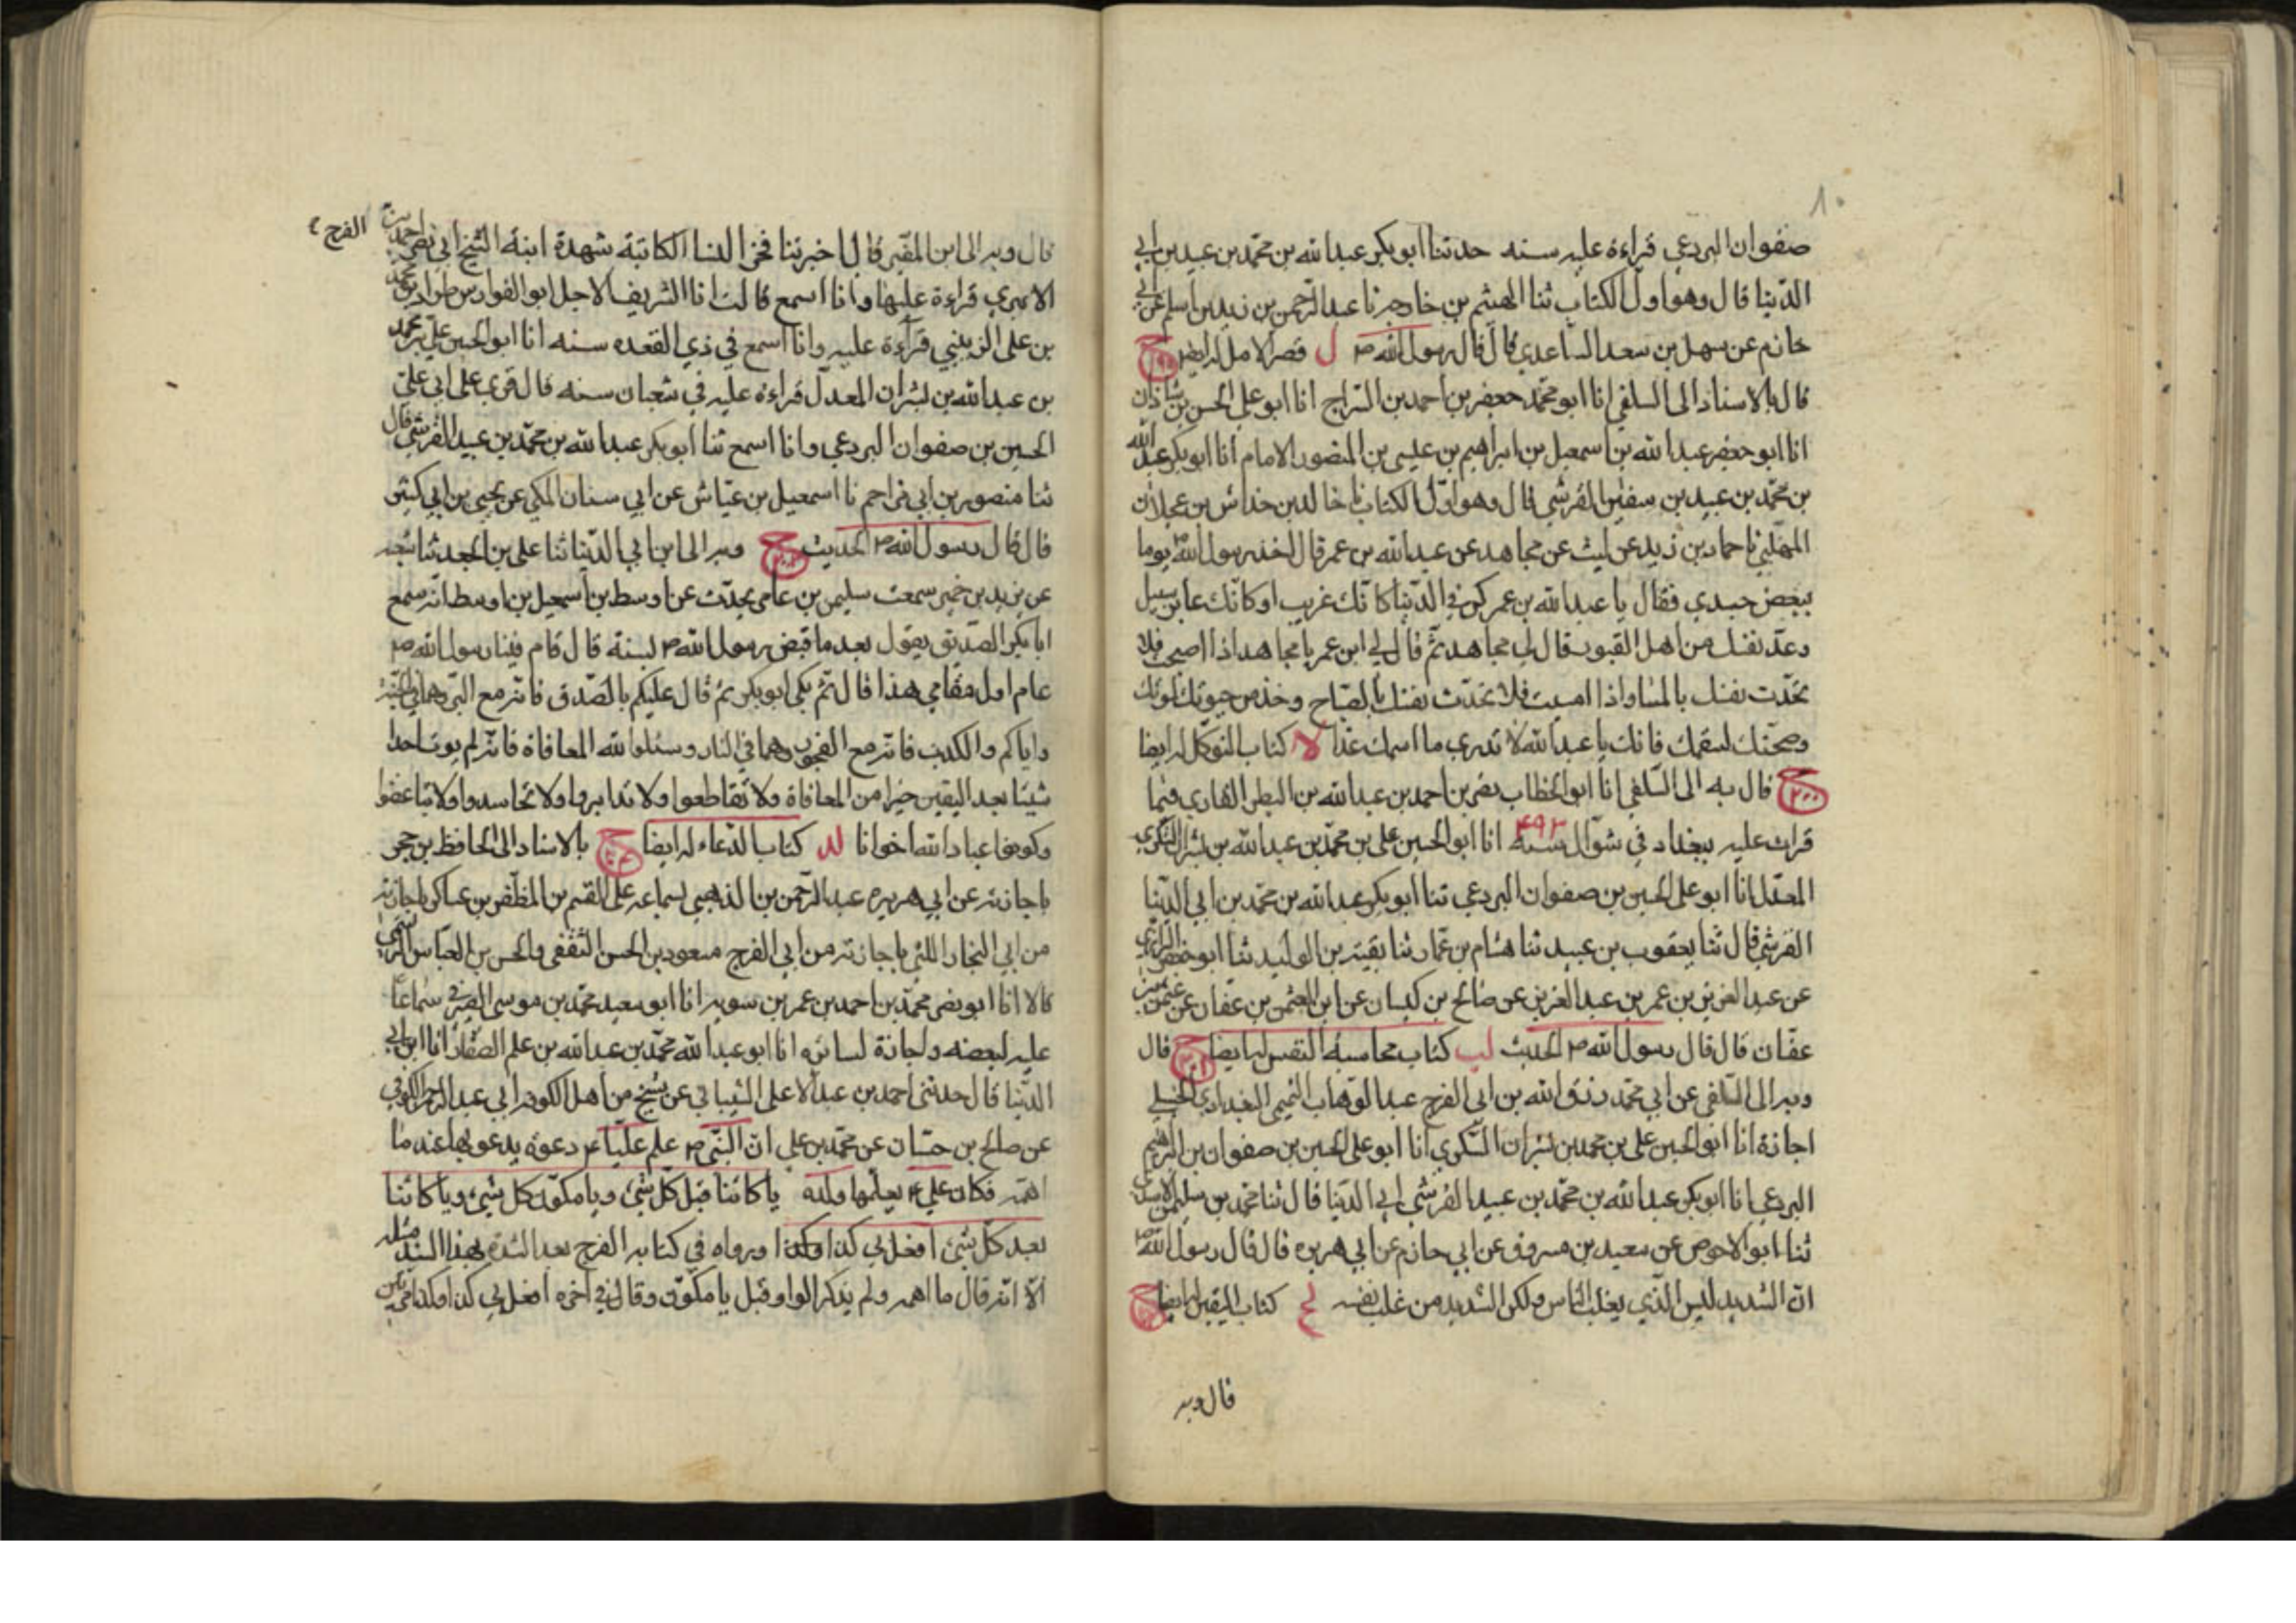 ١٠
صفوان البردعي قراءة عليه سنه حدثنا ابو بكر عبد الله بن محمد بن عبيد بن ابي
الدنيا قال وهو اول الكتاب ثنا الهيثم بن خارجه نا عبد الرحمن بن زيد بن اسلم عن ابي
حازم عن سهل بن سعد الساعدي قال قال رسول الله ص ل قصر الامل له ايضا ح
قال بالاسناد الى السلفي انا ابو محمد جعفر بن احمد بن السراج انا ابو علي الحسن بن شاذان
انا ابو جعفر عبد الله بن اسمعيل بن ابراهيم بن عيسى بن المنصور الامام انا ابو بكر عبد الله
بن محمد بن عبيد بن سفين القرشي قال وهو اول الكتاب نا خالد بن خداش بن عجلان
المهلبي نا حماد بن زيد عن ليث عن مجاهد عن عبد الله بن عمر قال اخذ رسول الله ص يوما
ببعض جسدي فقال يا عبد الله بن عمر كن في الدنيا كانك غريب او كانك عابر سبيل
وعد نفسك من اهل القبور قال لي مجاهد ثم قال لي ابن عمر يا مجاهد اذا اصبحت فلا
تحدث نفسك بالمسا واذا امسيت فلا تحدث نفسك بالصباح وخذ من حيوتك لموتك
وصحتك لسقمك فانك يا عبد الله لا تدري ما اسمك غدا لا كتاب التوكل له ايضا
ح ٢٠٠ قال به الى السلفي انا ابو الخطاب نصر بن احمد بن عبد الله بن البطر القاري فيما
قرات عليه ببغداد في شوال سنة ٤٩٢ انا ابو الحسين علي بن محمد بن عبد الله بن بشران السكري
المعدل انا ابو علي الحسين بن صفوان البردعي ثنا ابو بكر عبد الله بن محمد بن ابي الدنيا
القرشي قال ثنا يعقوب بن عبيد ثنا هشام بن عمار ثنا بقية بن الوليد ثنا ابو حفص الرازي
عن عبد العزيز بن عمر بن عبد العزيز عن صالح بن كيسان عن ابن العثمن بن عفان عن عثمن بن
عفان قال قال رسول الله ص الحديث لب كتاب محاسبة النفس له ايضا ح ٢٠١ قال
وبه الى السلفي عن ابي محمد رزق الله بن ابي الفرج عبد الوهاب التميمي البغدادي الحنبلي
اجازة انا ابو الحسين علي بن محمد بن بشران السكري انا ابو علي الحسين بن صفوان بن ابراهيم
البردعي انا ابو بكر عبد الله بن محمد بن عبيد القرشي ابي الدنيا قال ثنا محمد بن سليمن الاسدي
ثنا ابو الاحوص عن سعيد بن مسروق عن ابي حازم عن ابي هريره قال قال رسول الله ص
ان الشديد ليس الذي يغلب الناس ولكن الشديد من غلب نفسه لج كتاب اليقين له ايضا ح
قال وبه
قال وبه الى ابن المقير قال اخبرتنا فخر النسا الكاتبة شهدة ابنة الشيخ ابي نصر احمد بن الفرج
الابري قراءة عليها وانا اسمع قالت انا الشريف الاجل ابو الفوارس طراد بن محمد
بن على الزينبي قراءة عليه وانا اسمع في ذي القعده سنه انا ابو الحسين علي بن محمد
بن عبد الله بن بشران المعدل قراءة عليه في شعبان سنه قال قرى على ابي علي
الحسين بن صفوان البردعي وانا اسمع ثنا ابو بكر عبد الله بن محمد بن عبيد القرشي قال
ثنا منصور بن ابي مزاحم نا اسمعيل بن عياش عن ابي سنان المكي عن يحيى بن ابي كثير
قال قال رسول الله ص الحديث ح وبه الى ابن ابي الدنيا ثنا علي بن الجعد ثنا شعبه
عن يزيد بن خمير سمعت سليمن بن عامر يحدث عن اوسط بن اسمعيل بن اوسط انه سمع
ابا بكر الصديق يقول بعد ما قبض رسول الله ص بسنة قال قام فينا رسول الله ص
عام اول مقامي هذا قال ثم بكى ابو بكر ثم قال عليكم بالصدق فانه مع البر وهما في الجنة
واياكم والكذب فانه مع الفجور وهما في النار وسئلوا الله المعافاة فانه لم يوت احدا
شيئا بعد اليقين خيرا من المعافاة ولا تقاطعوا ولا تدابروا ولا تحاسدوا ولا تباغضوا
وكونوا عباد الله اخوانا لد كتاب الدعاء له ايضا ح بالاسناد الى الحافظ بن حجر
باجازته عن ابي هريره عبد الرحمن بن الذهبي بسماعه على القسم بن المظفر بن عساكر باجازته
من ابي النجار اللتي باجازته من ابي الفرج مسعود بن الحسن الثقفي والحسن بن العباس الرستمي
قالا انا ابو نصر محمد بن احمد بن عمر بن سويه انا ابو سعيد محمد بن موسى الصيرفي سماعا
عليه لبعضه واجازة لسائره انا ابو عبد الله محمد بن عبد الله بن علم الصفار انا ابن ابي
الدنيا قال حدثنى احمد بن عبد الاعلى الشيباني عن شيخ من اهل الكوفه ابي عبد الرحمن الكوفي
عن صالح بن حسان عن محمد بن علي ان النبي ص علم عليا ع دعوة يدعو بها عند ما
اهمه فكان علي ع يعلمها ولده يا كائنا قبل كل شئ ويا مكون كل شئ ويا كائنا
بعد كل شئ افعل بي كذا وكذا ورواه في كتابه الفرج بعد الشدة بهذا السند مثله
الا انه قال ما اهمه ولم يذكر الواو قبل يا مكون وقال في اخره افعل بي كذا وكذا